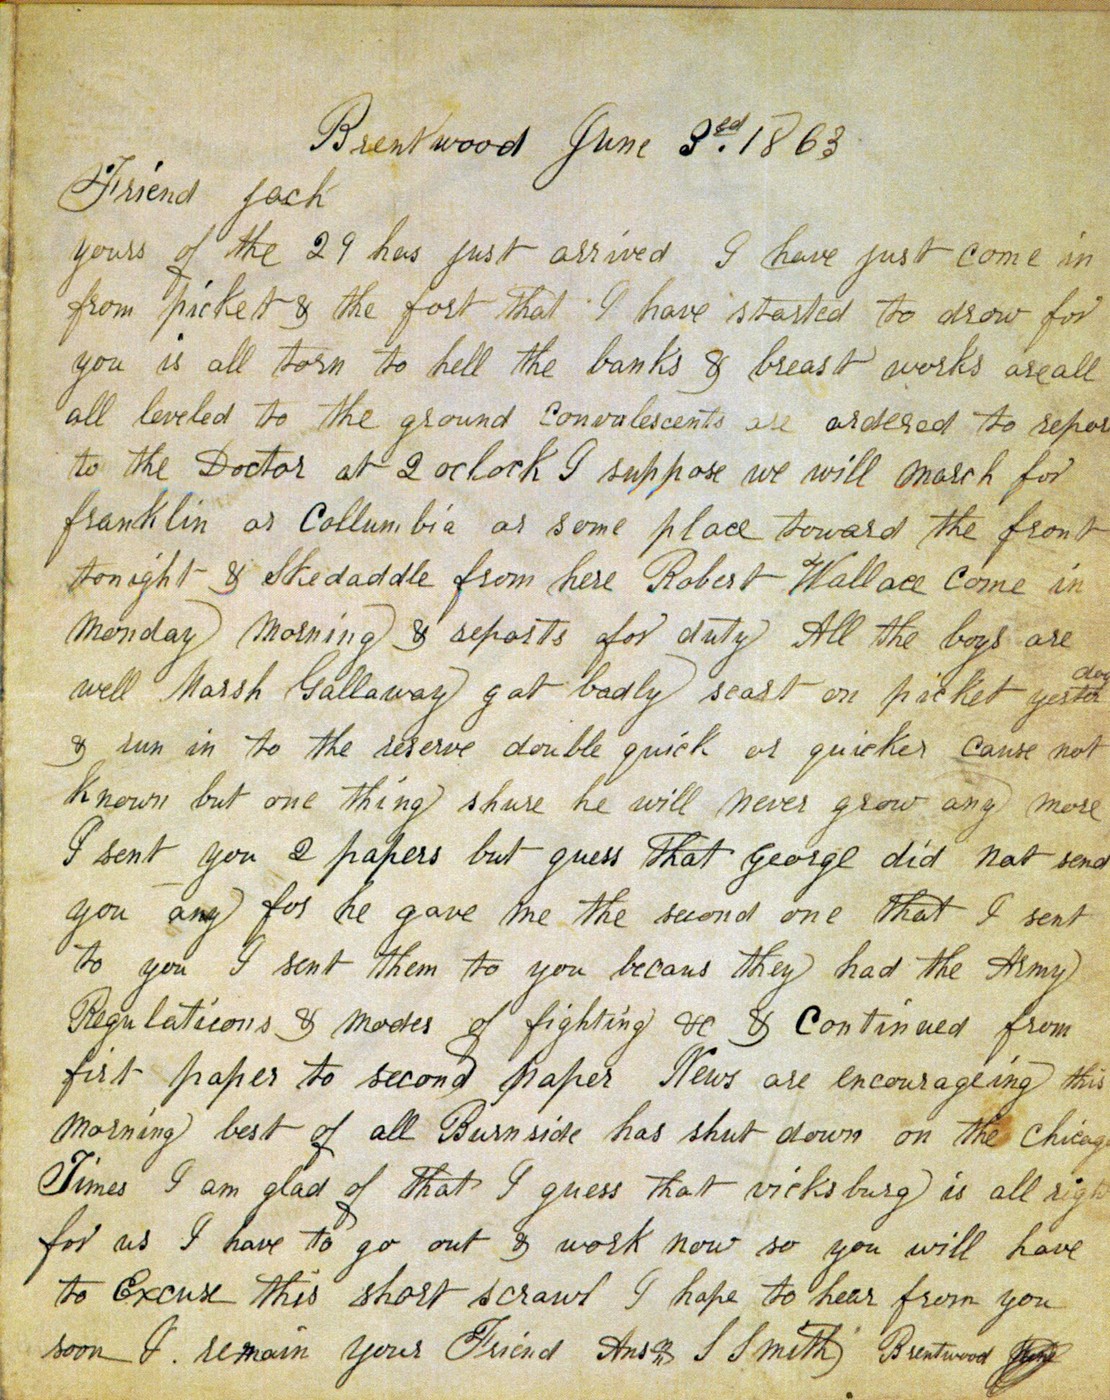 Brentwood June 3rd. 1863
Friend Jack
yours of the 29 has just arrived I have just come in
from picket & the fort that I have started to drow for
you is all torn to hell the banks & breast works are all
all leveled to the ground Convalescents are ordered to repor
to the Doctor at 2 oclock I suppose we will march for
franklin or Collumbia or some place toward the front
tonight & Skedaddle from here Robert Wallace Come in
Monday Morning & reports for duty All the boys are
well Marsh Gallaway got badly scart on picket yester
day
& run in to the reserve double quick or quicker Cause not
known but one thing shure he will never grow any more
I sent you 2 papers but guess that George did not send
you any for he gave me the second one that I sent
to you I sent them to you becaus they had the Army
Regulations & modes of fighting &c & Continued from
first paper to second paper News are encourageing this
morning best of all Burnside has shut down on the Chicag
Times I am glad of that I guess that vicksburg is all righ
for us I have to go out & work now so you will have
to Excuse this short scrawl I hope to hear from you
soon I. remain your Friend S Smith Brentwood